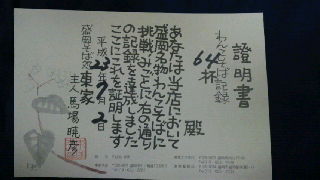 證明書
わんこそば記録
64杯
殿
あなたは当店において
盛岡名物わんこそばに
挑戦みごとに右の通り
の記録を達成しました
ここにこれを証明します
平成23年9月2日
盛岡そば処 東家
主人 馬場暁彦